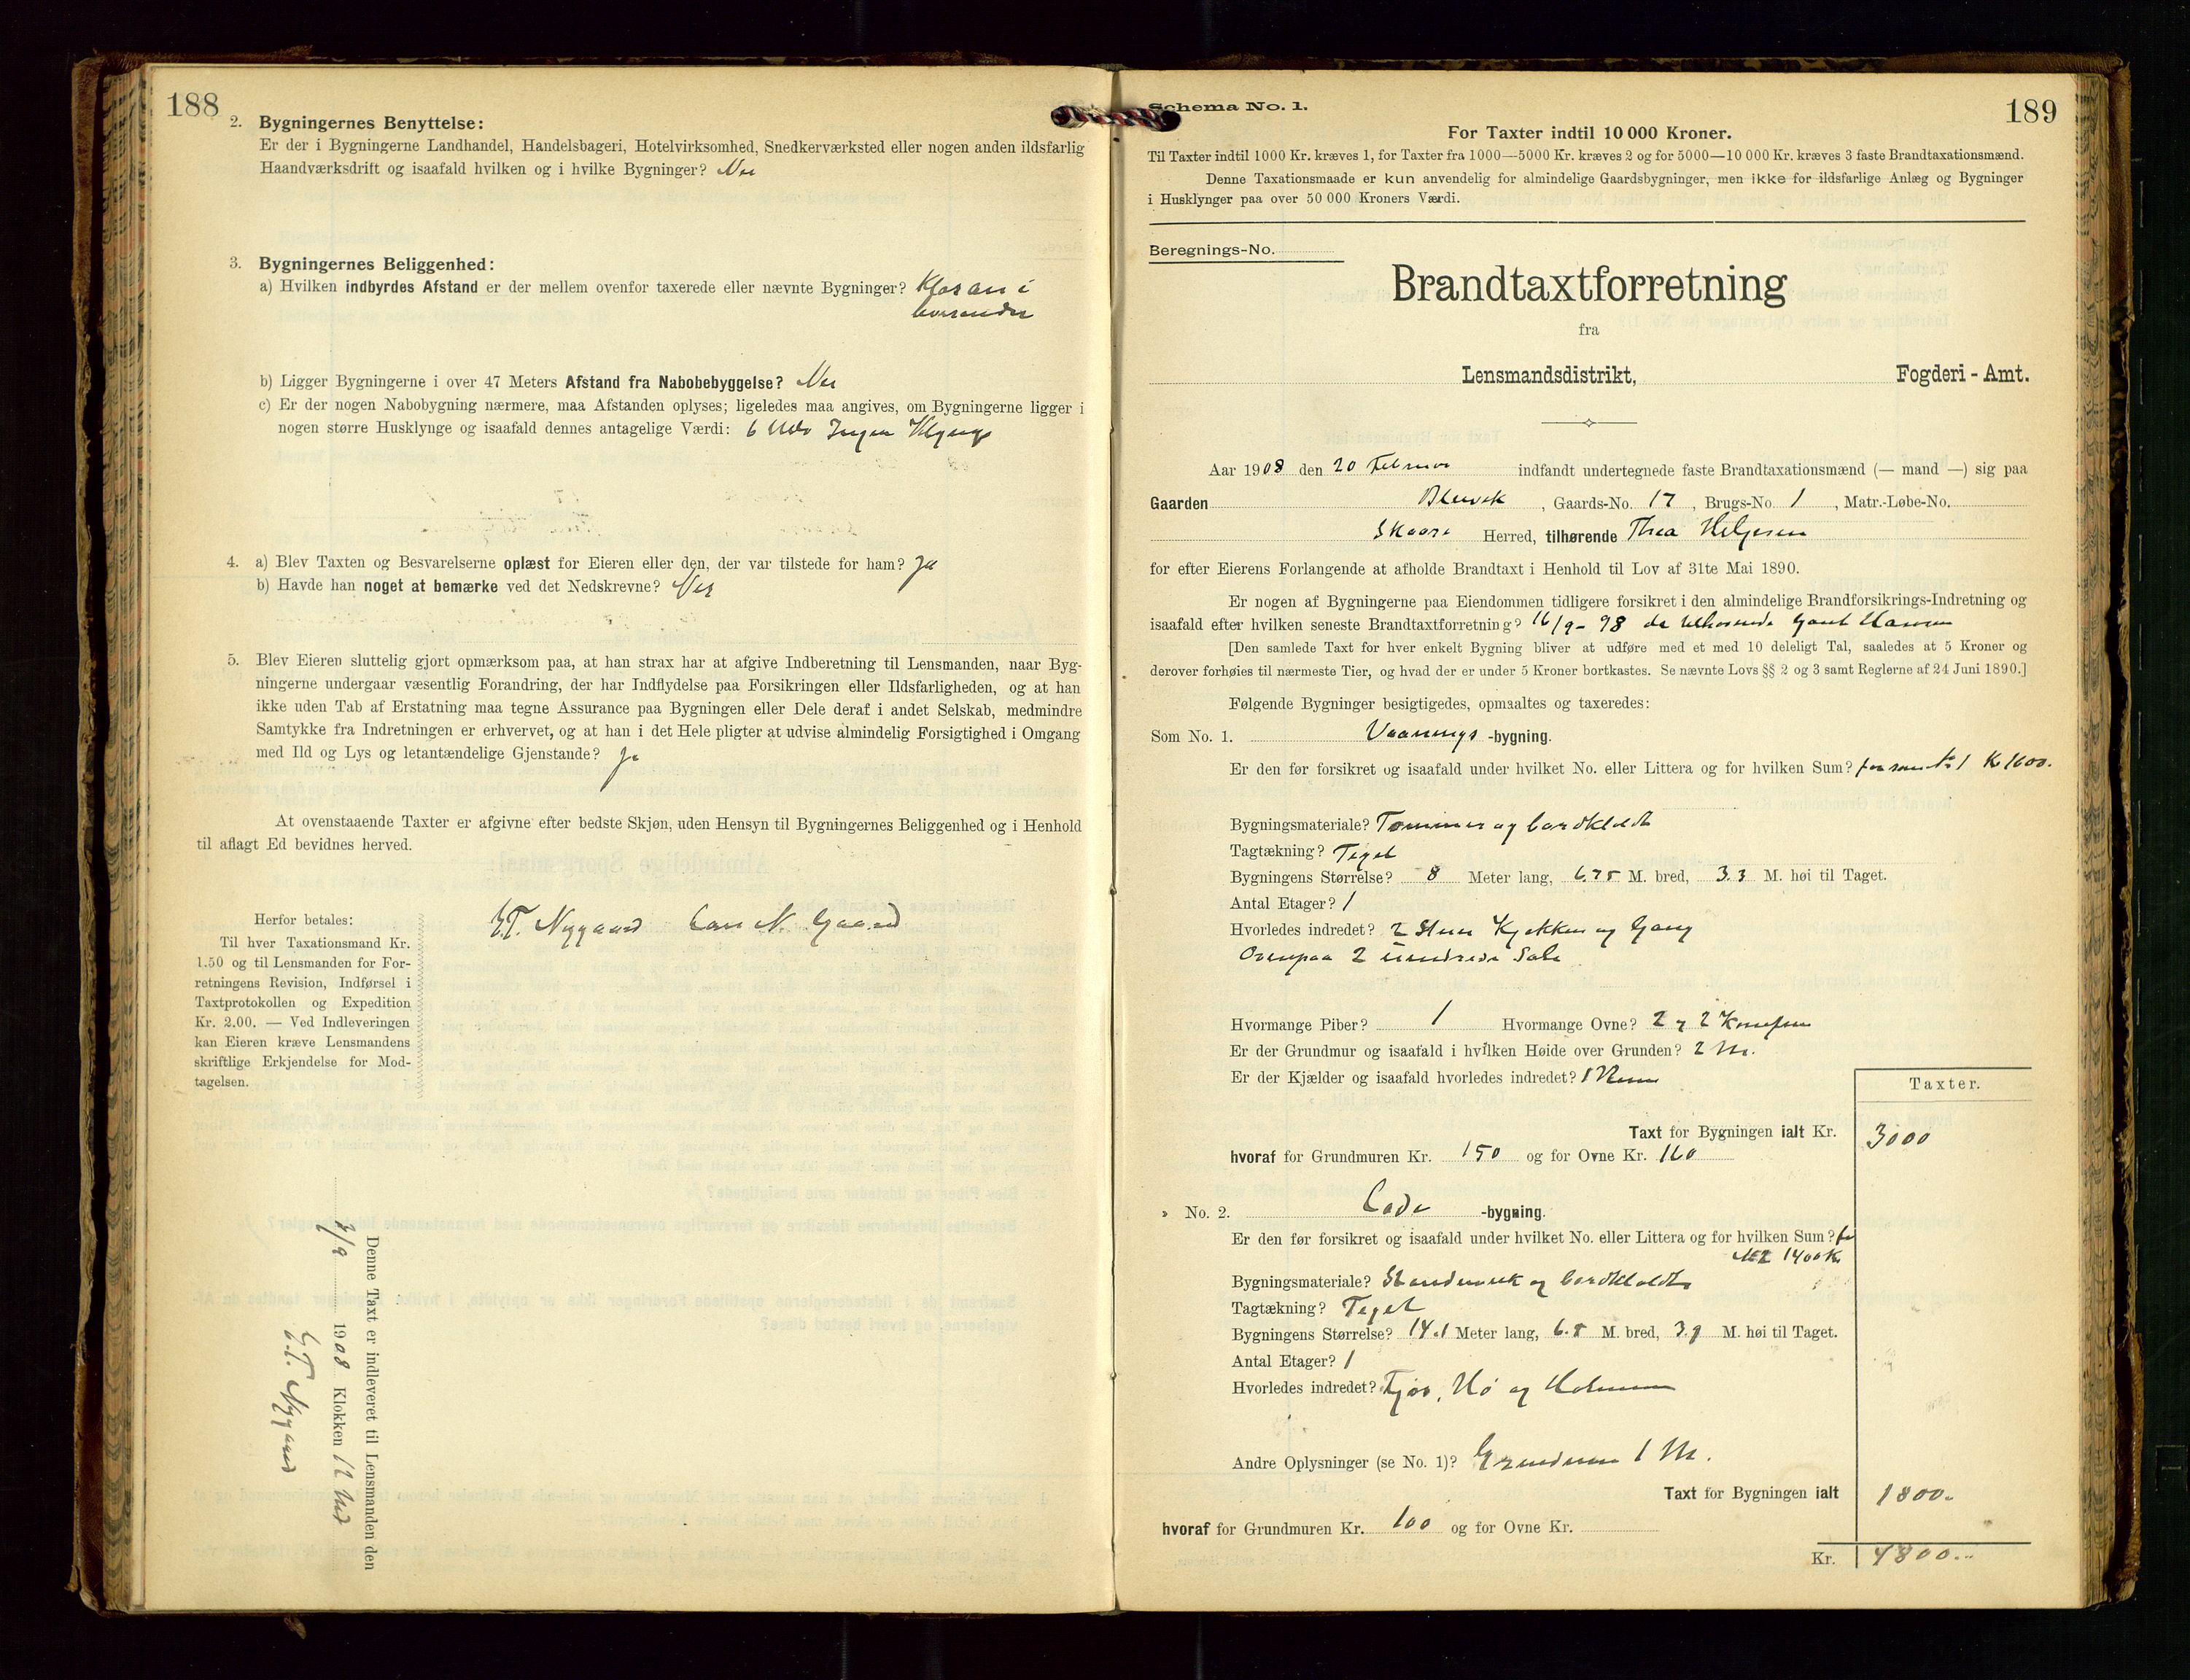 188
2. Bygningernes Benyttelse:
Er der i Bygningerne Landhandel, Handelsbageri, Hotelvirksomhed, Snedkerværksted eller nogen anden ildsfarlig
Haandværksdrift og isaafald hvilken og i hvilke Bygninger? Nei
3. Bygningernes Beliggenhed:
a) Hvilken indbyrdes Afstand er der mellem ovenfor taxerede eller nævnte Bygninger? Klos an i
hverandre
b) Ligger Bygningerne i over 47 Meters Afstand fra Nabobebyggelse? Nei
c) Er der nogen Nabobygning nærmere, maa Afstanden oplyses; ligeledes maa angives, om Bygningerne ligger i
nogen større Husklynge og isaafald dennes antagelige Værdi: 6 Mtr Ingen Klynge
4. a) Blev Taxten og Besvarelserne oplæst for Eieren eller den, der var tilstede for ham? Ja
b) Havde han noget at bemærke ved det Nedskrevne? Nei
5. Blev Eieren sluttelig gjort opmærksom paa, at han strax har at afgive Indberetning til Lensmanden, naar Byg-
ningerne undergaar væsentlig Forandring, der har Indflydelse paa Forsikringen eller Ildsfarligheden, og at han
ikke uden Tab af Erstatning maa tegne Assurance paa Bygningen eller Dele deraf i andet Selskab, medmindre
Samtykke fra Indretningen er erhvervet, og at han i det Hele pligter at udvise almindelig Forsigtighed i Omgang
med Ild og Lys og letantændelige Gjenstande? Ja
At ovenstaaende Taxter er afgivne efter bedste Skjøn, uden Hensyn til Bygningernes Beliggenhed og i Henhold
til aflagt Ed bevidnes herved.
Herfor betales:
Til hver Taxationsmand Kr.
1.50 og til Lensmanden for For-
retningens Revision, Indførsel i
Taxtprotokollen og Expedition
Kr. 2.00. — Ved Indleveringen
kan Eieren kræve Lensmandens
skriftlige Erkjendelse for Mod-
tagelsen.
Nygaard N. Gaard
Denne Taxt er indleveret til Lensmanden den
1908 Klokken 12
Nygaard
Schema No. 1.
189
For Taxter indtil 10 000 Kroner.
Til Taxter indtil 1000 Kr. kræves 1, for Taxter fra 1000—5000 Kr. kræves 2 og for 5000—10 000 Kr. kræves 3 faste Brandtaxationsmænd.
Denne Taxationsmaade er kun anvendelig for almindelige Gaardsbygninger, men ikke for ildsfarlige Anlæg og Bygninger
i Husklynger paa over 50 000 Kroners Værdi.
Beregnings-No.
Brandtaxtforretning
fra
Lensmandsdistrikt, Fogderi - Amt.
Aar 1908 den 20 Februar indfandt undertegnede faste Brandtaxationsmænd (— mand —) sig paa
Gaarden , Gaards-No. 17, Brugs-No. 1, Matr.-Løbe-No.
Skaare Herred, tilhørende Thea Helgesen
for efter Eierens Forlangende at afholde Brandtaxt i Henhold til Lov af 31te Mai 1890.
Er nogen af Bygningerne paa Eiendommen tidligere forsikret i den almindelige Brandforsikrings-Indretning og
isaafald efter hvilken seneste Brandtaxtforretning? 16/9 - 98
[Den samlede Taxt for hver enkelt Bygning bliver at udføre med et med 10 deleligt Tal, saaledes at 5 Kroner og
derover forhøies til nærmeste Tier, og hvad der er under 5 Kroner bortkastes. Se nævnte Lovs §§ 2 og 3 samt Reglerne af 24 Juni 1890.]
Følgende Bygninger besigtigedes, opmaaltes og taxeredes:
Som No. 1. Vaanings -bygning.
Er den før forsikret og isaafald under hvilket No. eller Littera og for hvilken Sum? for som No 1 Kr 1600.
Bygningsmateriale? Tømmer og bordklædt
Tagtækning? Tegel
Bygningens Størrelse? 8 Meter lang, 6.75 M. bred, 3.3 M. høi til Taget.
Antal Etager? 1
Hvorledes indredet? 2 Stuer Kjøkken og Gang
Ovenpaa 2 uindrede Sale
Hvormange Piber? 1 Hvormange Ovne? 2 og 2
Er der Grundmur og isaafald i hvilken Høide over Grunden? 2 M.
Er der Kjælder og isaafald hvorledes indredet? 1 Rum
Taxter.
Taxt for Bygningen ialt Kr. 3000
hvoraf for Grundmuren Kr. 150 og for Ovne Kr. 160
» No. 2. Lade -bygning.
Er den før forsikret og isaafald under hvilket No. eller Littera og for hvilken Sum? for
No 2 1400 Kr
Bygningsmateriale? Standerverk og bordklædt
Tagtækning? Tegel
Bygningens Størrelse? 14.1 Meter lang, 6.5 M. bred, 3.9 M. høi til Taget.
Antal Etager? 1
Hvorledes indredet? Fjøs, Hø og
Andre Oplysninger (se No. 1)? Grundmur 1 M.
Taxt for Bygningen ialt 1800.
hvoraf for Grundmuren Kr. 100 og for Ovne Kr.
Kr. 4800.